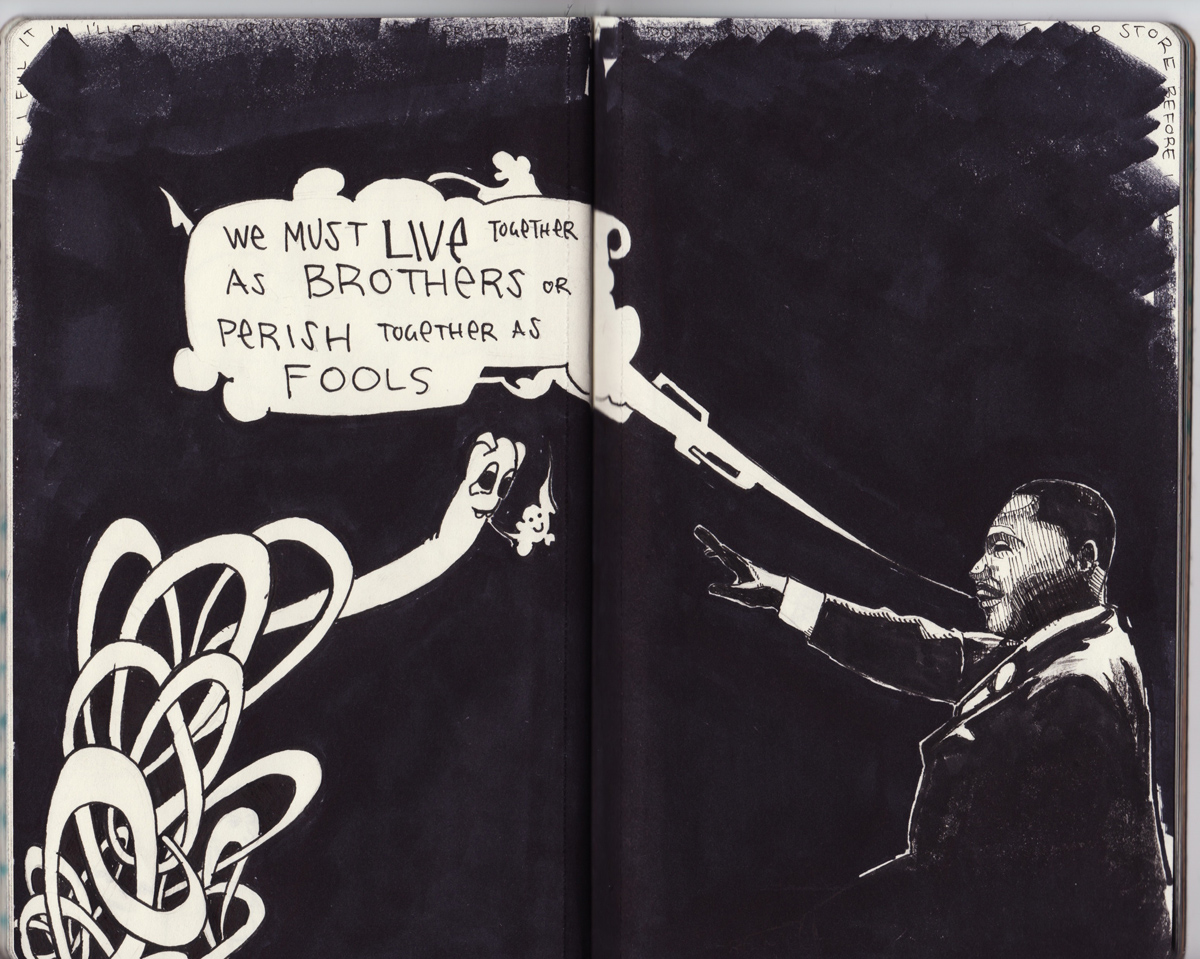 We MUST LIVe TOGeTHER
AS BROTHeRS OR
PeRISH TOGeTHeR AS
FOOLS
IF I
IT IN I'LL RUN OUT OF
STORE BEFORE I